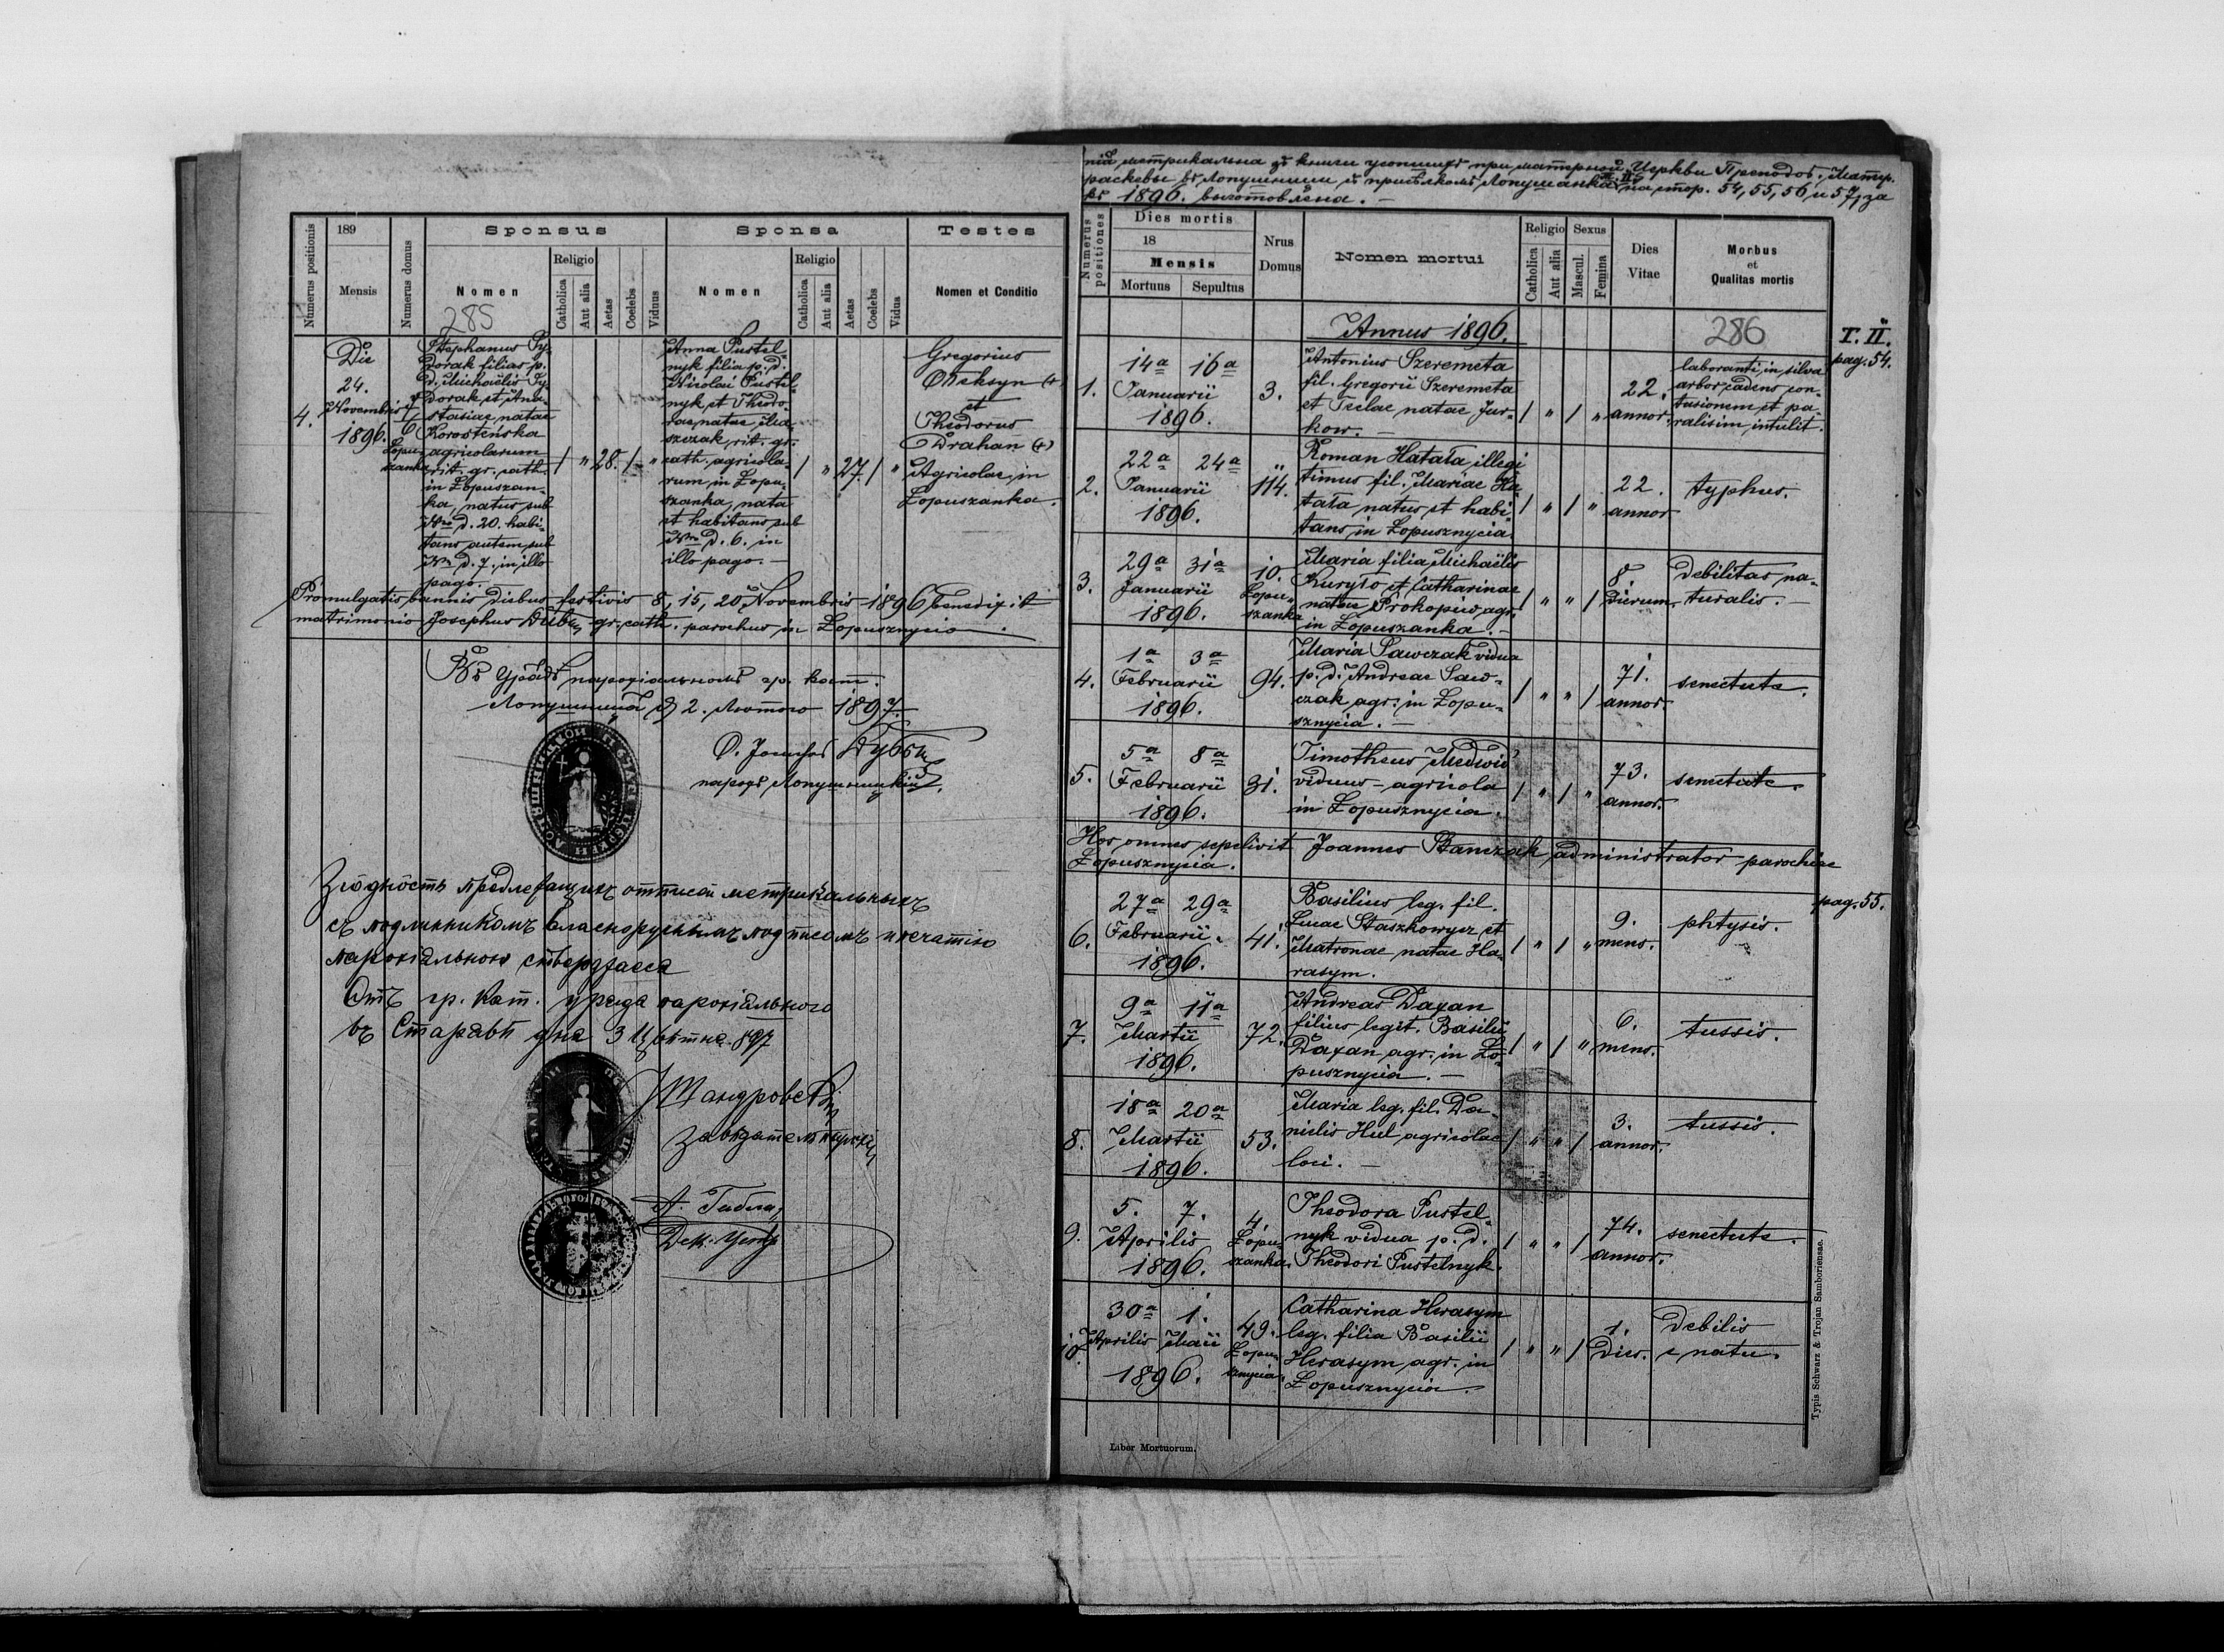 189
Sponsus
Sponsa
Testes
Numerus positionis
Mensis
Numerus domus
Nomen
Religio
Catholica
Aut alia
Aetas
Coelebs
Viduus
Nomen
Religio
Catholica
Aut alia
Aetas
Coelebs
Vidua
Nomen et Conditio
285
4.
Die
24.
Novembris
1896.
7
6
Łopu-
szanka
Stephanus Fy-
dorak filius p.
d. Michaëlis Fy-
dorak et Ana-
stasiae, natae
Korosteńska
agricolarum
rit. gr. cath.
in Łopuszan-
ka, natus sub
Nro d. 20. habi-
tans autem sub
Nro d. 7. in illo
pago. —
/ " 28. / "
Anna Pustel-
nyk filia p. d.
Nicolai Pustel-
nyk et Theodo-
rae, natae Ma-
szczak, rit. gr.
cath. agricola-
rum in Łopu-
szanka, nata
et habitans sub
Nro d. 6. in
illo pago. —
/ " 27. / "
Gregorius
Ołeksyn (+)
et
Theodorus
Drahan (+)
Agricolae in
Łopuszanka.
Promulgatis bannis diebus festivis 8, 15, 20 Novembris 1896 benedixit
matrimonio Josephus Dubeń gr. cath. parochus in Łopusznycia.
Въ Урядѣ парохіальномъ гр. кат.
Лопушница д 2. Лютого 1897.
О. Іосифъ
парохъ Лопушницкій.
Згôдность предлежащихъ отписей метрикальныхъ
съ подлинникомъ власноручнымъ подписомъ и печатію
парохіальною ствержаєся
Отъ гр. кат. уряда парохіального
въ Старявѣ дня 3 897
завѣдатель парохіи
ніа метрикальна зъ книги усопшихъ при матерной Церкви Преподоб. Матер.
раскевы въ Лопушници зъ присѣлкомъ Лопушанка Т. II. на стор. 54, 55, 56 и 57, за
къ 1896. выготовлена. —
Numerus positiones
Dies mortis
18
Mensis
Mortuus
Sepultus
Nrus
Domus
Nomen mortui
Religio
Catholica
Aut alia
Sexus
Mascul.
Femina
Dies
Vitae
Morbus
et
Qualitas mortis
Annus 1896.
286
T. II.
pag. 54.
1.
14a 16a
Januarii
1896.
3.
Antonius Szeremeta
fil. Gregorii Szeremeta
et Teclae natae Jur-
kow. —
/ " / "
22.
annor.
laboranti in silva
arbor cadens con-
tusionem et pa-
ralisim intulit.
2.
22a 24a
Januarii
1896.
114.
Roman Hatała illegi
timus fil. Mariae Ha-
tała natus et habi-
tans in Łopusznycia.
/ " / "
22.
annor
typhus.
3.
29a 31a
Januarii
1896.
10.
Łopu-
szanka
Maria filia Michaëlis
Kuryło et Catharinae
natae Prokopiw agr.
in Łopuszanka. —
/ " " /
8
dierum
debilitas na-
turalis. —
4.
1a 3a
Februarii
1896.
94.
Maria Sawczak vidua
p. d. Andreae Saw-
czak agr. in Łopu-
sznycia. —
/ " " /
71.
annor.
senectute.
5.
5a 8a
Februarii
1896.
31.
Timotheus Medwid
viduus - agricola
in Łopusznycia.
/ " / "
73.
annor.
senectute.
Hos omnes sepelivit Joannes Stanczak administrator parochiae
Łopusznycia.
pag. 55.
6.
27a 29a
Februarii.
1896.
41.
Basilius leg. fil.
Lucae Staszkowycz et
Matronae natae Ha-
rasym.
/ " / "
9.
mens.
phtysis.
7.
9a 11a
Martii
1896.
72.
Andreas Daxan
filius legit. Basilii
Daxan agr. in Ło-
pusznycia. —
/ " / "
6.
mens.
tussis.
8.
18a 20a
Martii
1896.
53.
Maria leg. fil. Da-
nielis Hul agricolae
loci. —
/ " " /
3.
annor.
tussis.
9.
5. 7.
Aprilis
1896.
4.
Łopu-
szanka.
Theodora Pustel-
nyk vidua p. d.
Theodori Pustelnyk.
/ " " /
74.
annor.
senectute.
10.
30a 1.
Aprilis Maii
1896.
49.
Łopu-
sznycia.
Catharina Herasym
leg. filia Basilii
Herasym agr. in
Łopusznycia.
/ " " /
1.
dies.
debilis
e natu.
Liber Mortuorum.
Typis Schwarz & Trojan Samboriensae.